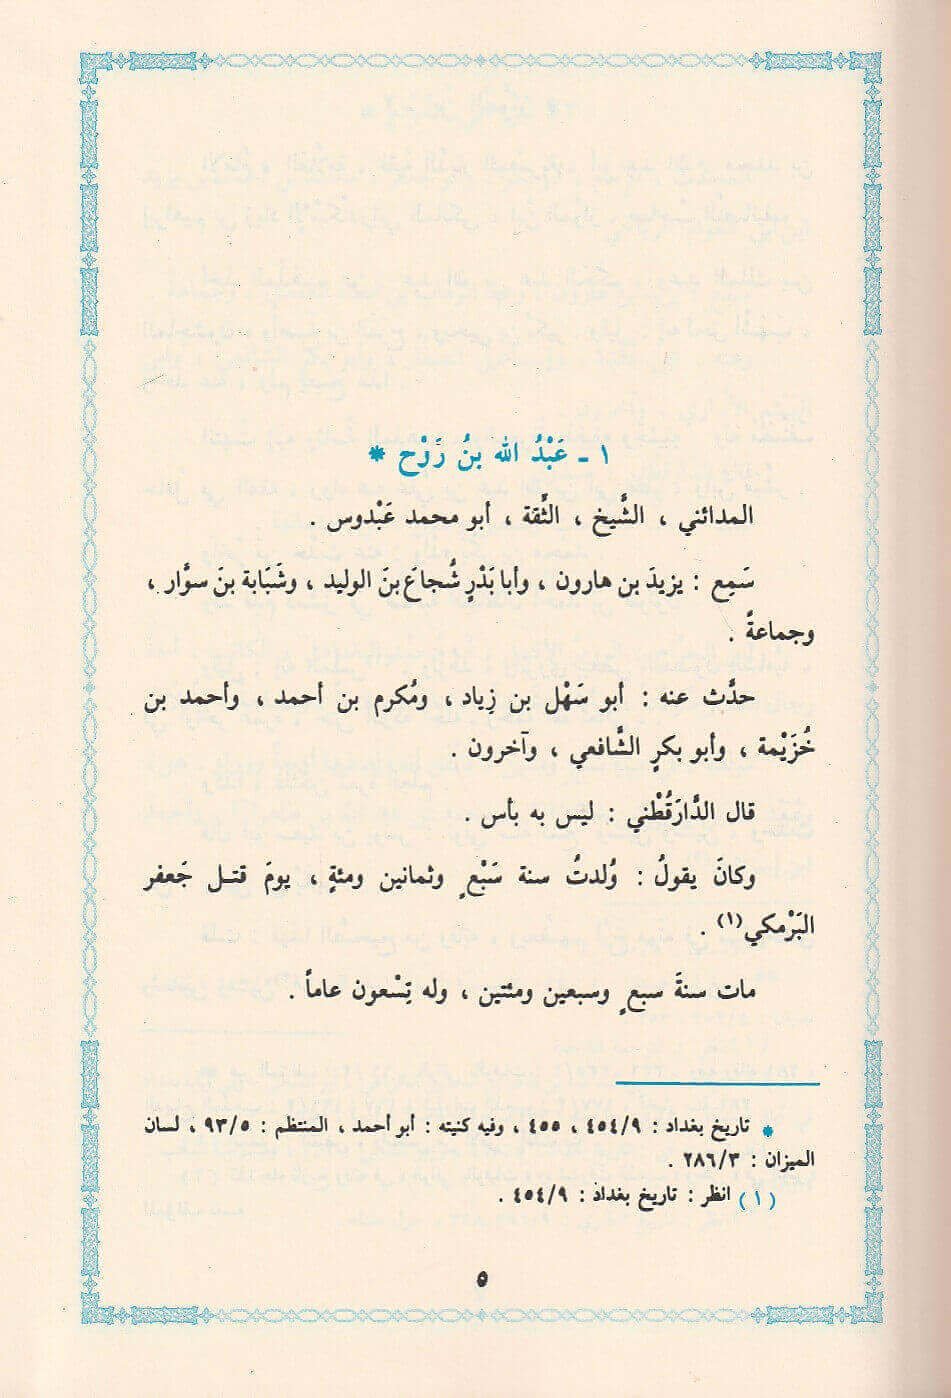 ١ - عَبْدُ الله بنُ رَوْح *
المدائني ، الشَّيخ ، الثِّقة ، أبو محمد عَبْدوس .
سَمِع : يزيدَ بن هارون ، وأبا بَدْرٍ شُجاعَ بنَ الوليد ، وشَبَابة بنَ سوَّار ،
وجماعةً .
حدَّث عنه : أبو سَهْل بن زِياد ، ومُكرم بن أحمد ، وأحمد بن
خُزَيْمة ، وأبو بكرٍ الشَّافعي ، وآخرون .
قال الدَّارَقُطْني : ليس به بأس .
وكانَ يقولُ : وُلدتُ سنة سَبْعٍ وثمانين ومئةٍ ، يومَ قتل جَعفر
البَرْمكي(١) .
مات سنةَ سبعٍ وسبعين ومئتين ، وله تِسْعون عاماً .
* تاريخ بغداد : ٤٥٤/٩ ، ٤٥٥ ، وفيه كنيته : أبو أحمد ، المنتظم : ٩٣/٥ ، لسان
الميزان : ٢٨٦/٣ .
(١) انظر : تاريخ بغداد : ٤٥٤/٩ .
٥